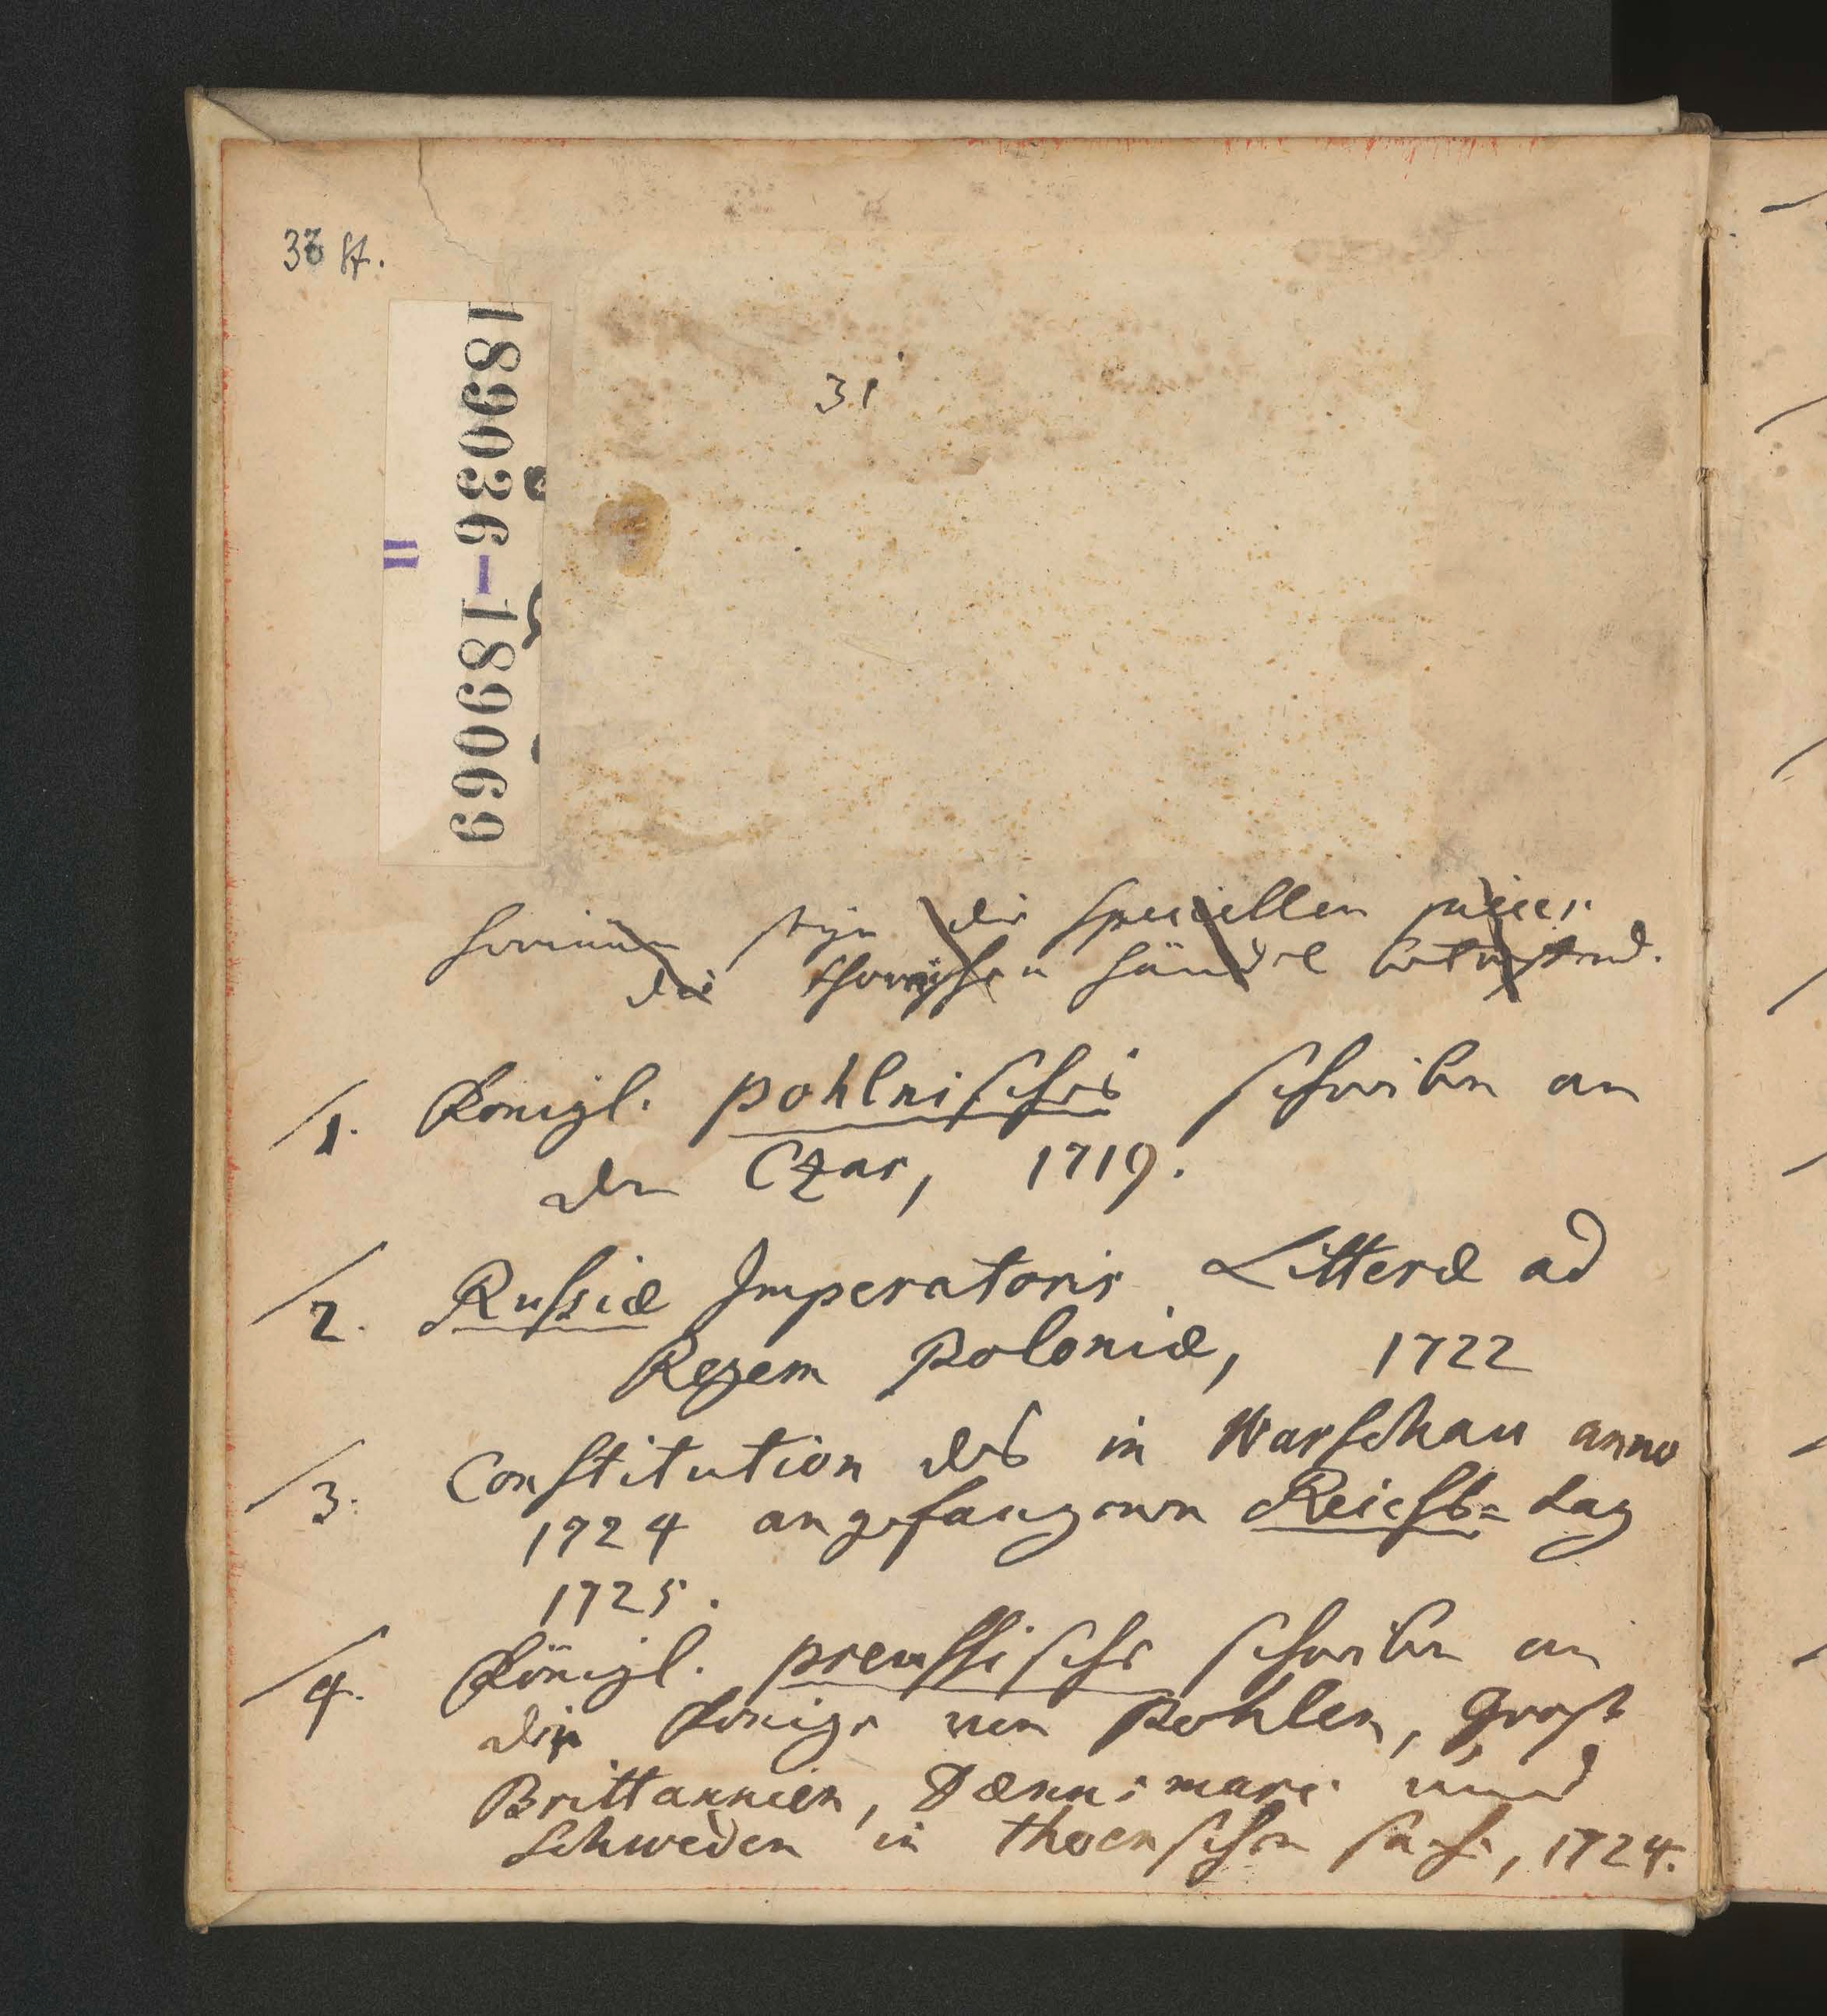 33 St.
189036-189069
II
31
hierinnen seyn die speciellen
die thornischen Händel betreffend.
1. Königl. pohlnisches schreiben an
den Czar, 1719.
2. Russiæ Imperatoris Litteræ ad
Regem Poloniæ, 1722
3. Constitution des in Warschau anno
1724 angefangenen Reichs=tag
1725.
4. Königl. preussische schreiben an
die Könige von Pohlen, Groß
Brittannien, Dænnemarc und
Schweden in thornschen sache, 1724.